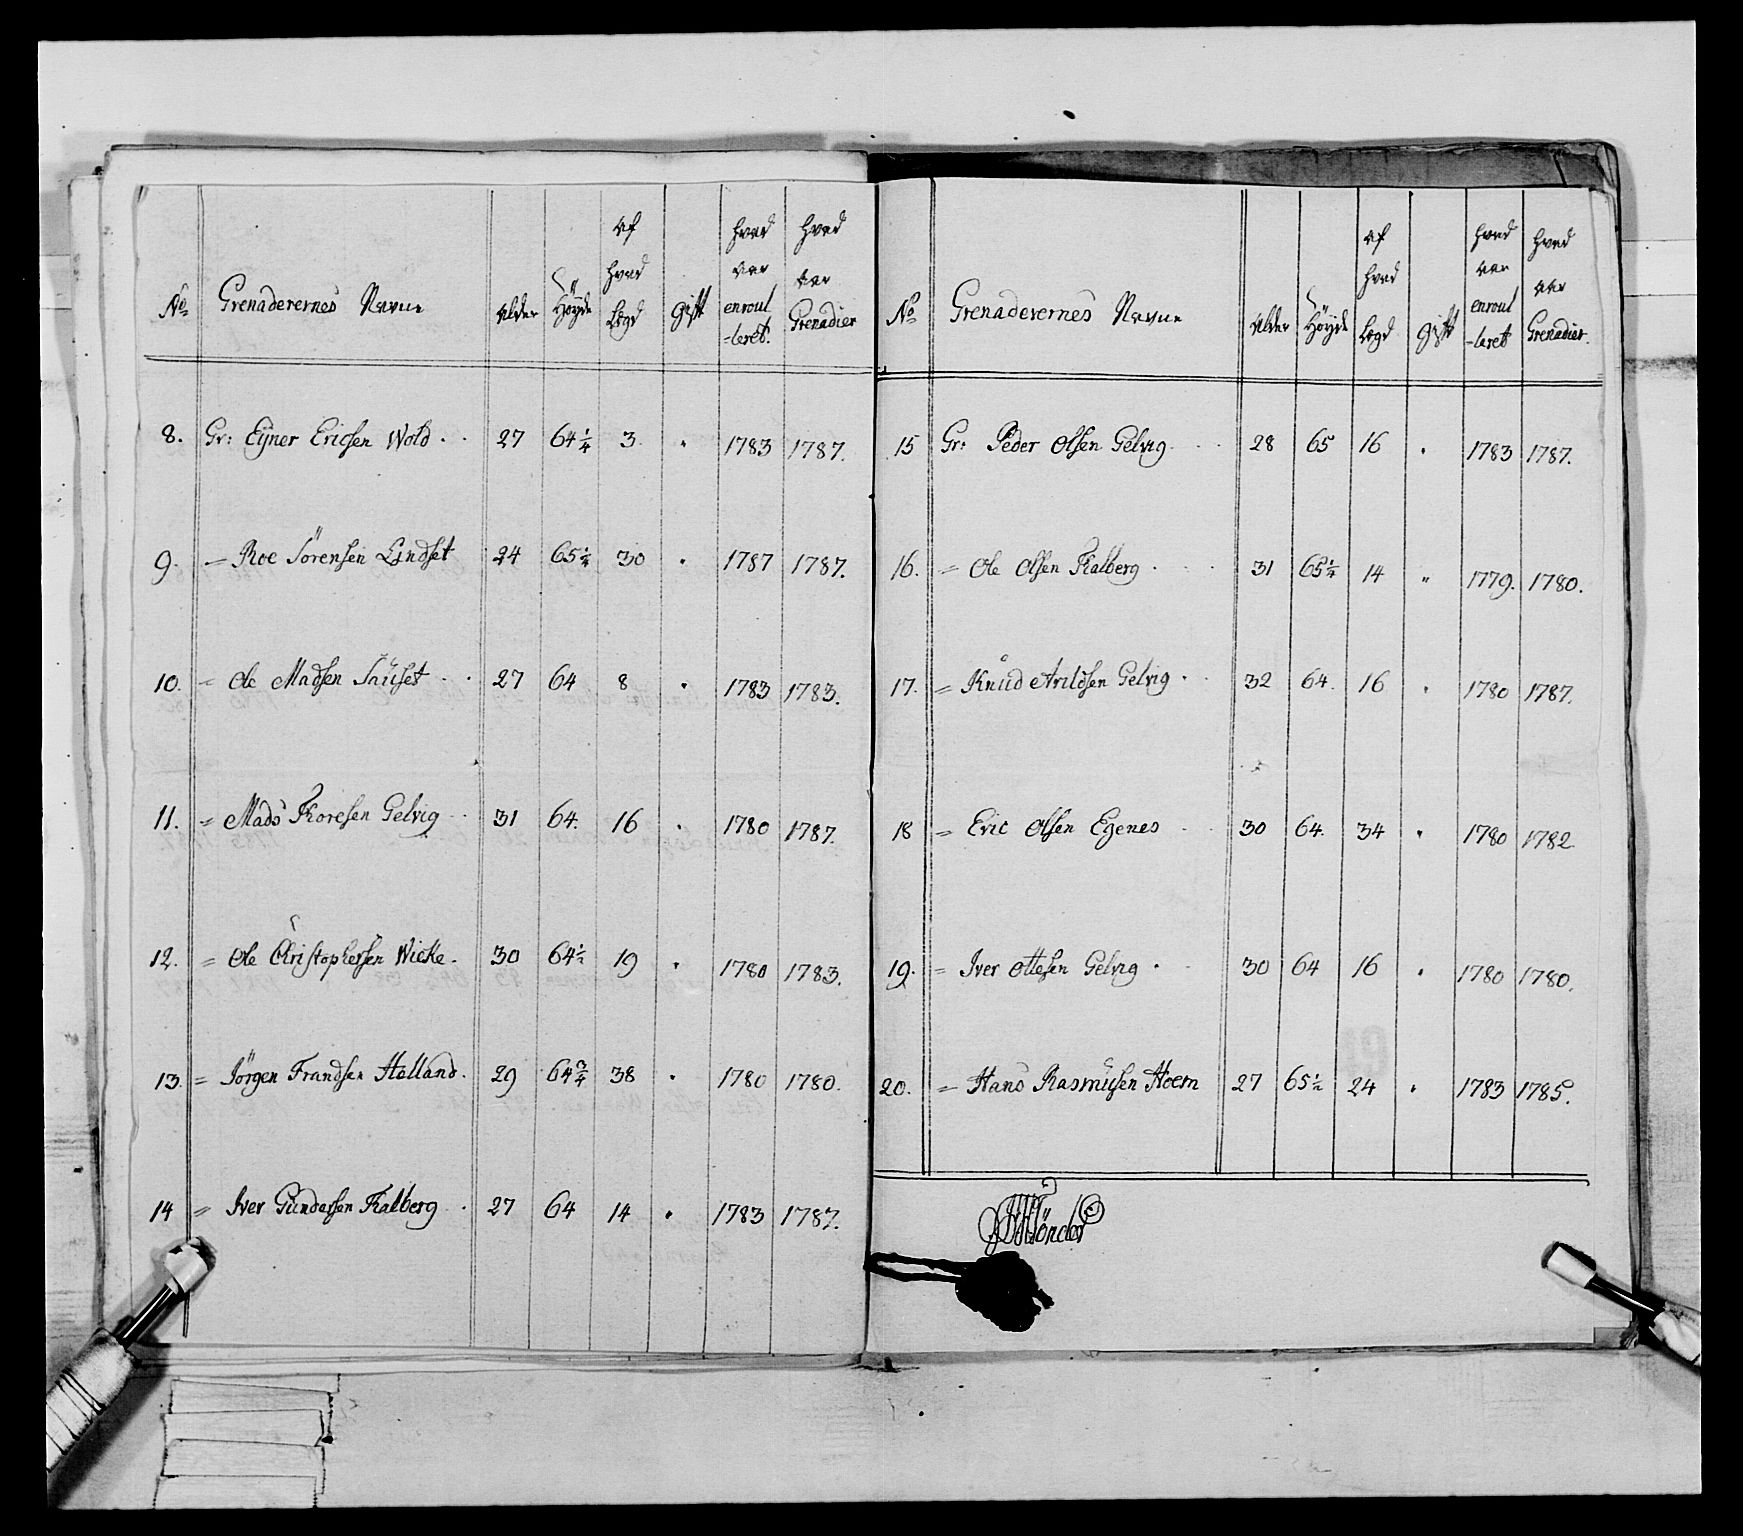 No Grenaderernes Navne Alder Höyde af hvad Lægd gift hvad aar enroul-leret. hvad aar Grenadier
8. Gr: Ejner Ericsen Wold 27 64 1/4 3 " 1783 1787.
9. — Roe Sörensen Lindset 24 65 1/4 30 " 1787 1787.
10. = Ole Madsen Sauset 27 64 8 " 1783 1783.
11. = Mads Thoresen Gelvig 31 64. 16 " 1780 1787.
12. = Ole Christophersen Wicke 30 64 1/2 19 " 1780 1783.
13. = Jörgen Frandsen Holland 29 64 3/4 38 " 1780 1780.
14 = Iver Gundersen Kalberg 27 64 14 " 1783 1787.
No Grenaderernes Navne Alder Höyde af hvad Lægd gift hvad aar enroul-leret hvad aar Grenadier.
15 Gr: Peder Olsen Gelvig 28 65 16 " 1783 1787.
16. = Ole Olsen Kalberg 31 65 1/4 14 " 1779. 1780.
17. = Knud Arildsen Gelvig 32 64. 16 " 1780 1787.
18 = Eric Olsen Egenes 30 64. 34 " 1780 1782
19. = Iver Ottesen Gelvig 30 64 16 " 1780 1780.
20. = Hans Rasmusen Hoem 27 65 1/2 24 " 1783 1785.